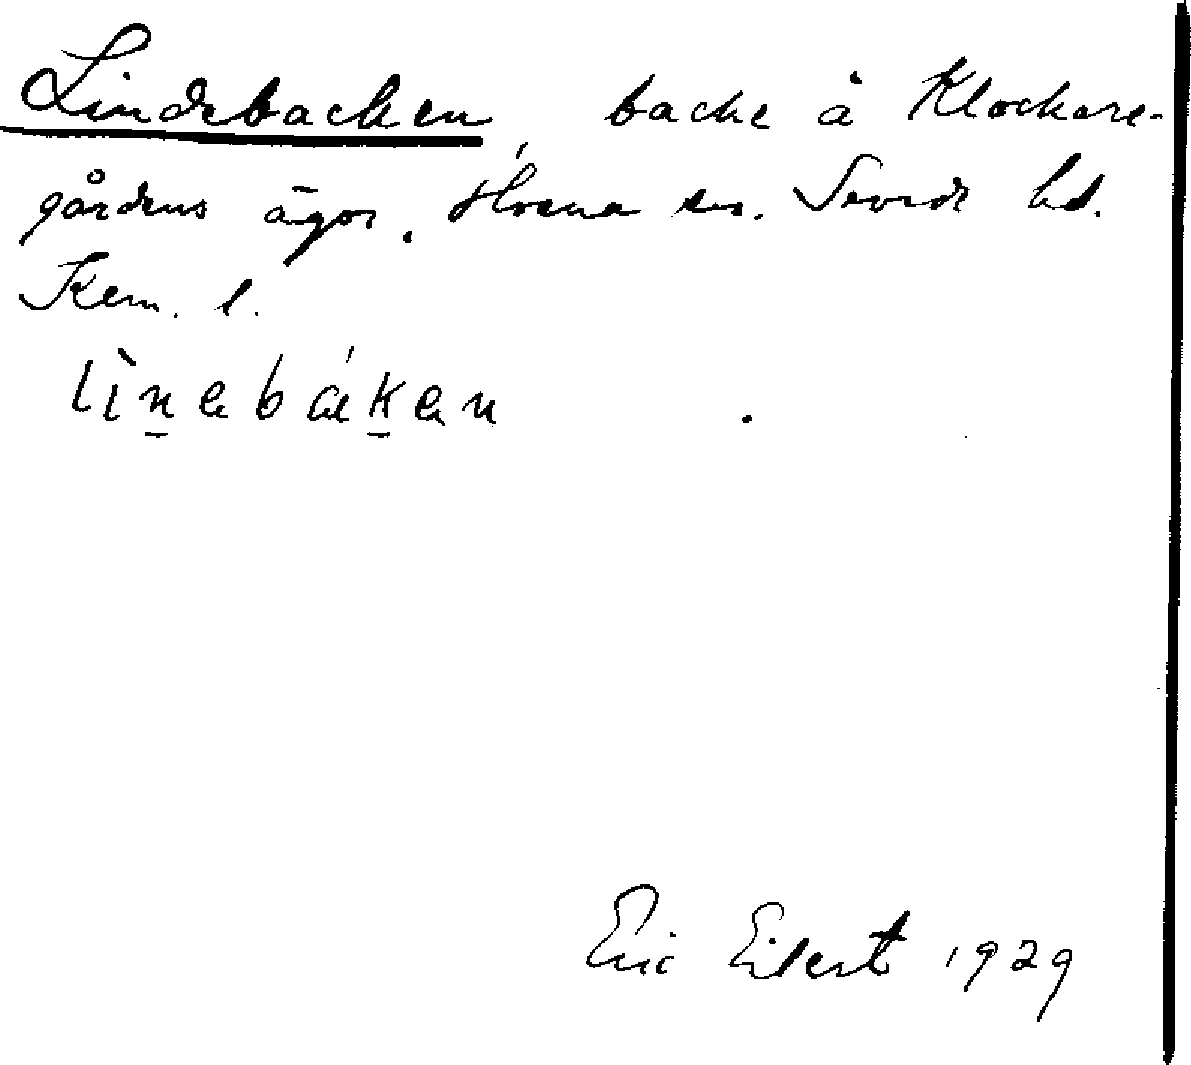 Lindebacken, backe å Klockare-
gårdens ägor. Hosna sn. Sevede hd.
Kem. l.
lìnebáken
Eric Eilert 1929